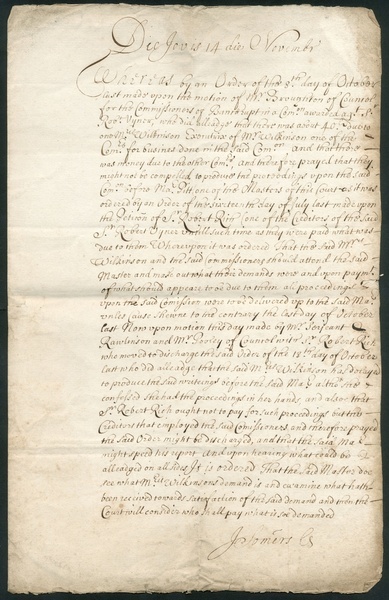 Die Jovis 14 die Novembr
Whereas by an Order of the 8th day of October
last made upon the motion of Mr Brownton of Councel
for the Commissioners of Bankrupt in a Comon awarded agt Sr
Robt Vyner, who did alledge that there was about 40l due to
one Mrs Wilkinson Executrix of Mr Wilkinson one of the
Coms for business done in the said Comon and that there
was money due to the other Coms and therefore prayed that they
might not be compelled to produce the proceedings upon the said
Comon before Mr one of the Masters of this Court as it was
ordered by an Order of the sixteenth day of July last made upon
the Peticon of Sr Robert Rich one of the Creditors of the said
Sr Robert Vyner untill such time as they were paid what was
due to them Whereupon it was ordered That the said Mrs
Wilkinson and the said Commissioners should attend the said
Master and make out what their demands were and upon paymt
of what should appear to be due to them all proceedings
upon the said Comission were to be delivered up to the said Mar
unles cause shewne to the contrary the last day of October
last Now upon motion this day made by Mr Serjeant
Rawlinson and Mr Pooley of Councel with Sr Robert Rich
who moved to discharge the said Order of the 18th day of October
last who did alleadge that the said Mrs Wilkinson has
to produce the said writings before the said Mar altho she
confessed she had the proceedings in her hands and also that
Sr Robert Rich ought not to pay for such proceedings but the
Creditors that employed the said Comissioners and therefore prayed
the said Order might be discharged, and that the said Mar
might speed his report And upon hearing what could be
alleadged on all sides It is ordered That the said Master doe
see what Mrs Wilkinsons demand is and examine what hath
been received towards satisfaction of the said demand and then the
Court will consider who shall pay what is so demanded
J Somers CS